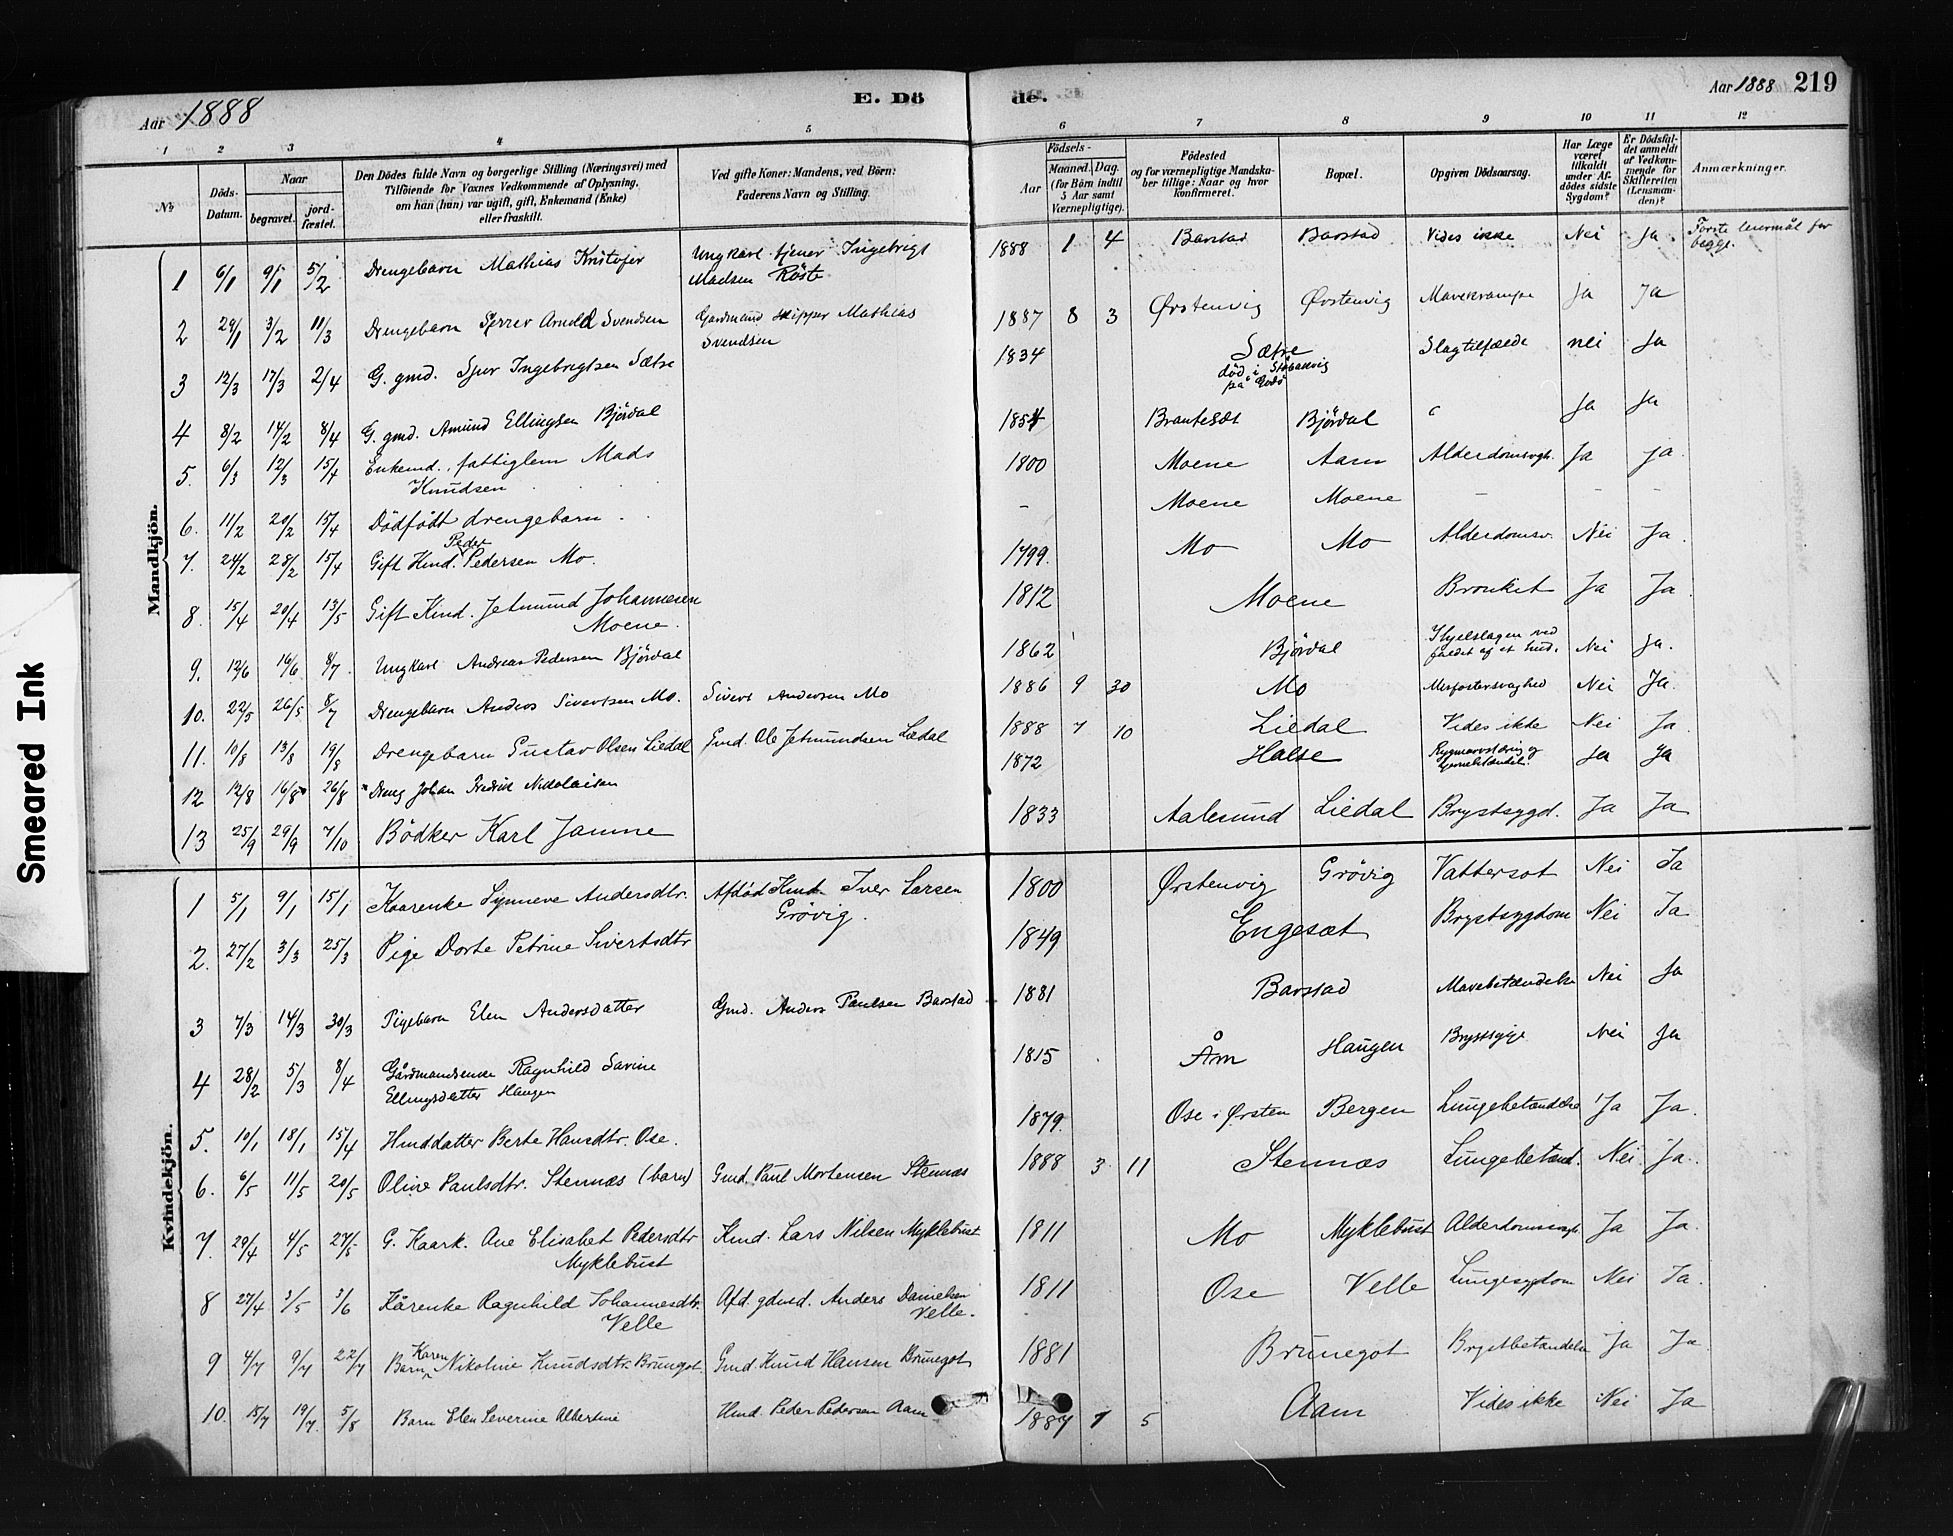 Aar 1888
E. Dö
de.
Aar 1888 219
1 2 3 4 5 6 7 8 9 10 11 12
№
Döds-Datum.
Naar
begravet.
jord-fæstet.
Den Dödes fulde Navn og borgerlige Stilling (Næringsvei) med
Tilföiende for Voxnes Vedkommende af Oplysning,
om han (hun) var ugift, gift, Enkemand (Enke)
eller fraskilt.
Ved gifte Koner: Mandens, ved Börn:
Faderens Navn og Stilling.
Födsels-
Aar
Maaned.
Dag.
(for Börn indtil
5 Aar samt
Værnepligtige).
Födested
og for værnepligtige Mandska-
ber tillige: Naar og hvor
konfirmeret.
Bopæl.
Opgiven Dödsaarsag.
Har Læge
været
tilkaldt
under Af-
dödes sidste
Sygdom?
Er Dödsfal-
det anmeldt
af Vedkom-
mende for
Skifteretten
(Lensman-
den)?
Anmærkninger.
Mandkjön.
1 6/1 9/1 5/2 Drengebarn Mathias Kristofer Ungkarl tjener Ingebrigt 1888 1 4 Barstad Barstad Vides ikke Nei Ja Første leiermål for
Madsen Röste begge.
2 29/1 3/2 11/3 Drengebarn Sverrer Arnold Svendsen Gardmand skipper Mathias 1887 8 3 Ørstenvig Ørstenvig Mavekrampe Ja Ja
Svendsen
3 12/3 17/3 2/4 G. gmd. Sjur Ingebrigtsen Sætre 1834 Sætre Slagtilfælde nei Ja
död i
på Godö
4 8/2 14/2 8/4 G. gmd. Amund Ellingsen Björdal 1854 Brautesæt Björdal " Ja Ja
5. 6/3 12/3 15/4 Enkemd., fattiglem Mads 1800 Moene Aam Alderdomsvgh. Ja Ja.
Knudsen
6. 11/2 20/2 15/4 Dödfödt drengebarn. - Moene Moene - - -
Peder
7. 24/2 28/2 15/4 Gift Kmd. Pedersen Mo. 1799. Mo Mo Alderdomsv. Nei Ja.
8. 15/4 20/4 13/5 Gift Kmd. Jetmund Johannesen 1812 Moene Bronkit Ja Ja.
Moene.
9. 12/6 16/6 8/7. Ungkarl Andreas Pedersen Björdal 1862 Björdal Ihjelslagen ved Nei Ja.
faldet af et hus.
10. 22/5 26/5 8/7 Drengebarn Anders Sivertsen Mo. Sivert Andersen Mo 1886 9 30 Mo Nei Ja.
11. 10/8 13/8 19/8 Drengebarn Gustav Olsen Liedal Gmd. Ole Jetmundsen Liedal 1888 7 10 Liedal Vides ikke Nei Ja.
12 12/8 16/8 26/8 Dreng Johan Fredrik Nikolaisen 1872 Halse Ja Ja
13 25/9 29/9 7/10 Bödker Karl Janne 1833 Aalesund Liedal Brystsygd. Ja Ja
Kvindekjön.
1 5/1 9/1 15/1 Kaarenke Synneve Andersdtr. Afdöd Kmd. Iver Larsen 1800 Ørstenvig Grövig Vattersot Nei Ja
Grövig.
2. 27/2 3/3 25/3 Pige Dorte Petrine Sivertsdtr 1849 Engesæt Brystsygdom Nei Ja
3 7/3 14/3 30/3 Pigebarn Elen Andersdatter Gmd. Anders Paulsen Barstad 1881 Barstad Mavebetændelse Nei Ja
4 28/2 5/3 8/4 Gårdmandsenke Ragnhild Savine 1815 Åm Haugen Brystsyge Nei Ja
Ellingsdatter Haugen
5. 10/1 18/1 15/4 Kmddatter Berte Hansdtr. Ose. 1879. Ose i Ørsten Bergen Lungebetændelse Ja Ja.
6. 6/5 11/5 20/5 Oline Paulsdtr. Stennæs (barn) Gmd. Paul Mortensen Stennæs 1888 3 11 Stennæs Lungebetænd. Nei Ja.
7. 29/4 4/5 27/5 G. Kaark. Ane Elisabet Pedersdtr Kmd. Lars Nilsen Myklebust 1811 Mo Myklebust Alderdomssvagh. Ja Ja.
Myklebust
8 27/4 3/5 3/6 Kårenke Ragnhild Johannesdtr. Afd. gdmd. Anders Danielsen 1811 Ose Velle Lungesygdom Nei Ja.
Velle Velle.
Karen
9 4/7 9/7 22/7 Barn Nikoline Knudsdtr. Brunegot. Gmd. Knud Hansen Brunegot 1881 Brunegot Brystbetændelse Ja Ja
10. 15/7 19/7. 5/8 Barn Elen Severine Albertine Kmd. Peder Pedersen Aam 1887 7 5 Aam Vides ikke Nei Ja
Smeared Ink